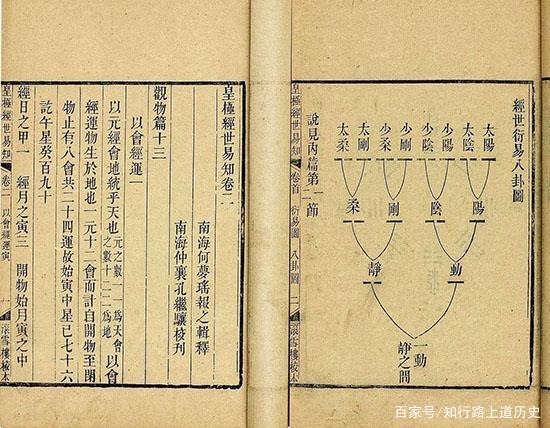 經世衍易八卦圖
太陽
太陰
少陽
少陰
少剛
少柔
太剛
太柔
陽
陰
剛
柔
動
靜
一動
靜之間
說見內篇第一節
皇極經世易知
卷首
衍易圖
八卦圖
二
皇極經世易知卷二
南海何夢瑤報之輯釋
南海仲襄孔繼驤校刊
觀物篇十三
以會經運一
以元經會地統乎天也
元之數一一為天會
之數十二二為地
以會
經運物生於地也一元十二會而計自開物至閉
物止有八會共二十四運故始寅中星巳七十六
訖午星癸百九十
經日之甲一
經月之寅三
開物始月寅之中
皇極經世易知
卷二
以會經運寅
一
百家号/知行路上道历史